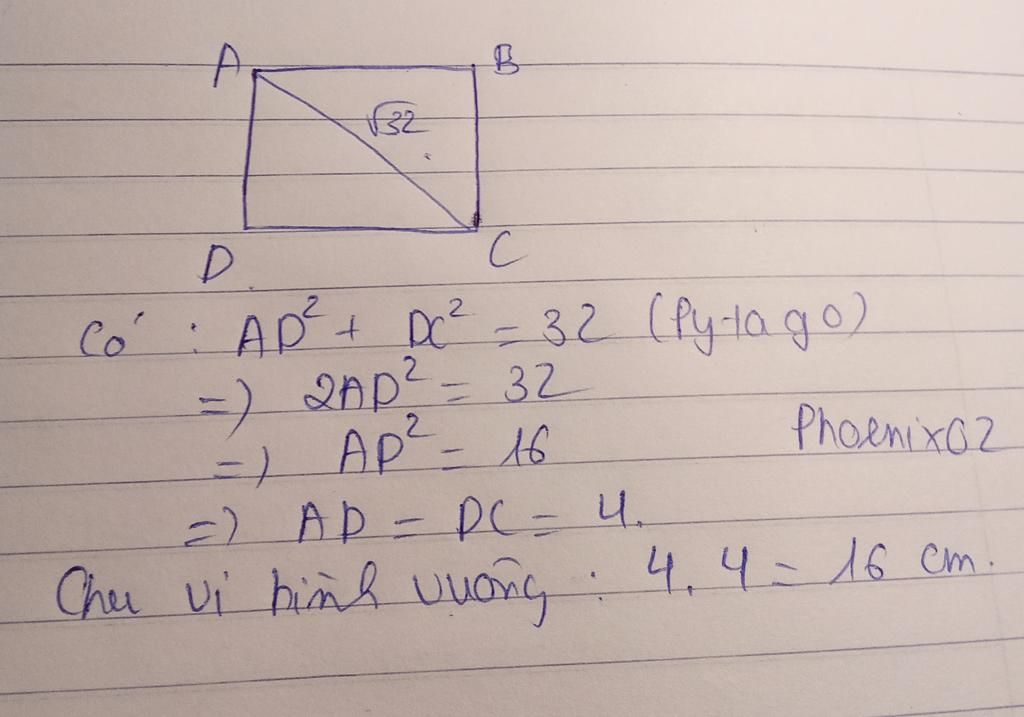 A B
√32
D C
Có : AD² + DC² = 32 (Pytago)
=> 2AD² = 32
=> AD² = 16
Phoenix02
=> AD = DC = 4.
Chu vi hình vuông : 4.4 = 16 cm.